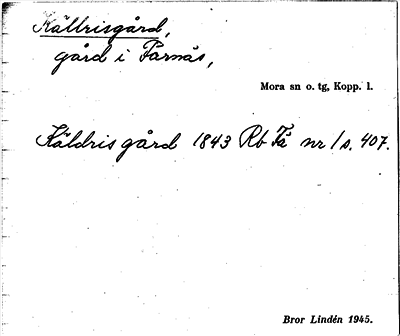 Källrisgård,
gård i Färnäs,
Mora sn o. tg, Kopp. l.
Käldris gård 1843 Rb Fä nr 1 s. 407.
Bror Lindén 1945.